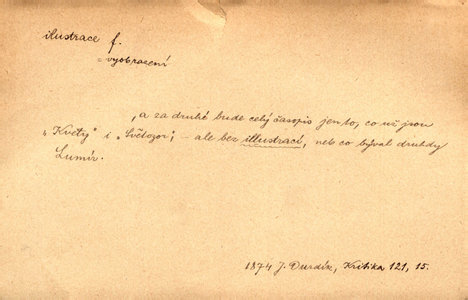 ilustrace f.
= vyobrazení
„a za druhé bude celý časopis jen to, co už jsou
„Květy" i „Světozor", – ale bez illustrací, neb co býval druhdy
Lumír.
1874 J. Durdík, Kritika 121, 15.